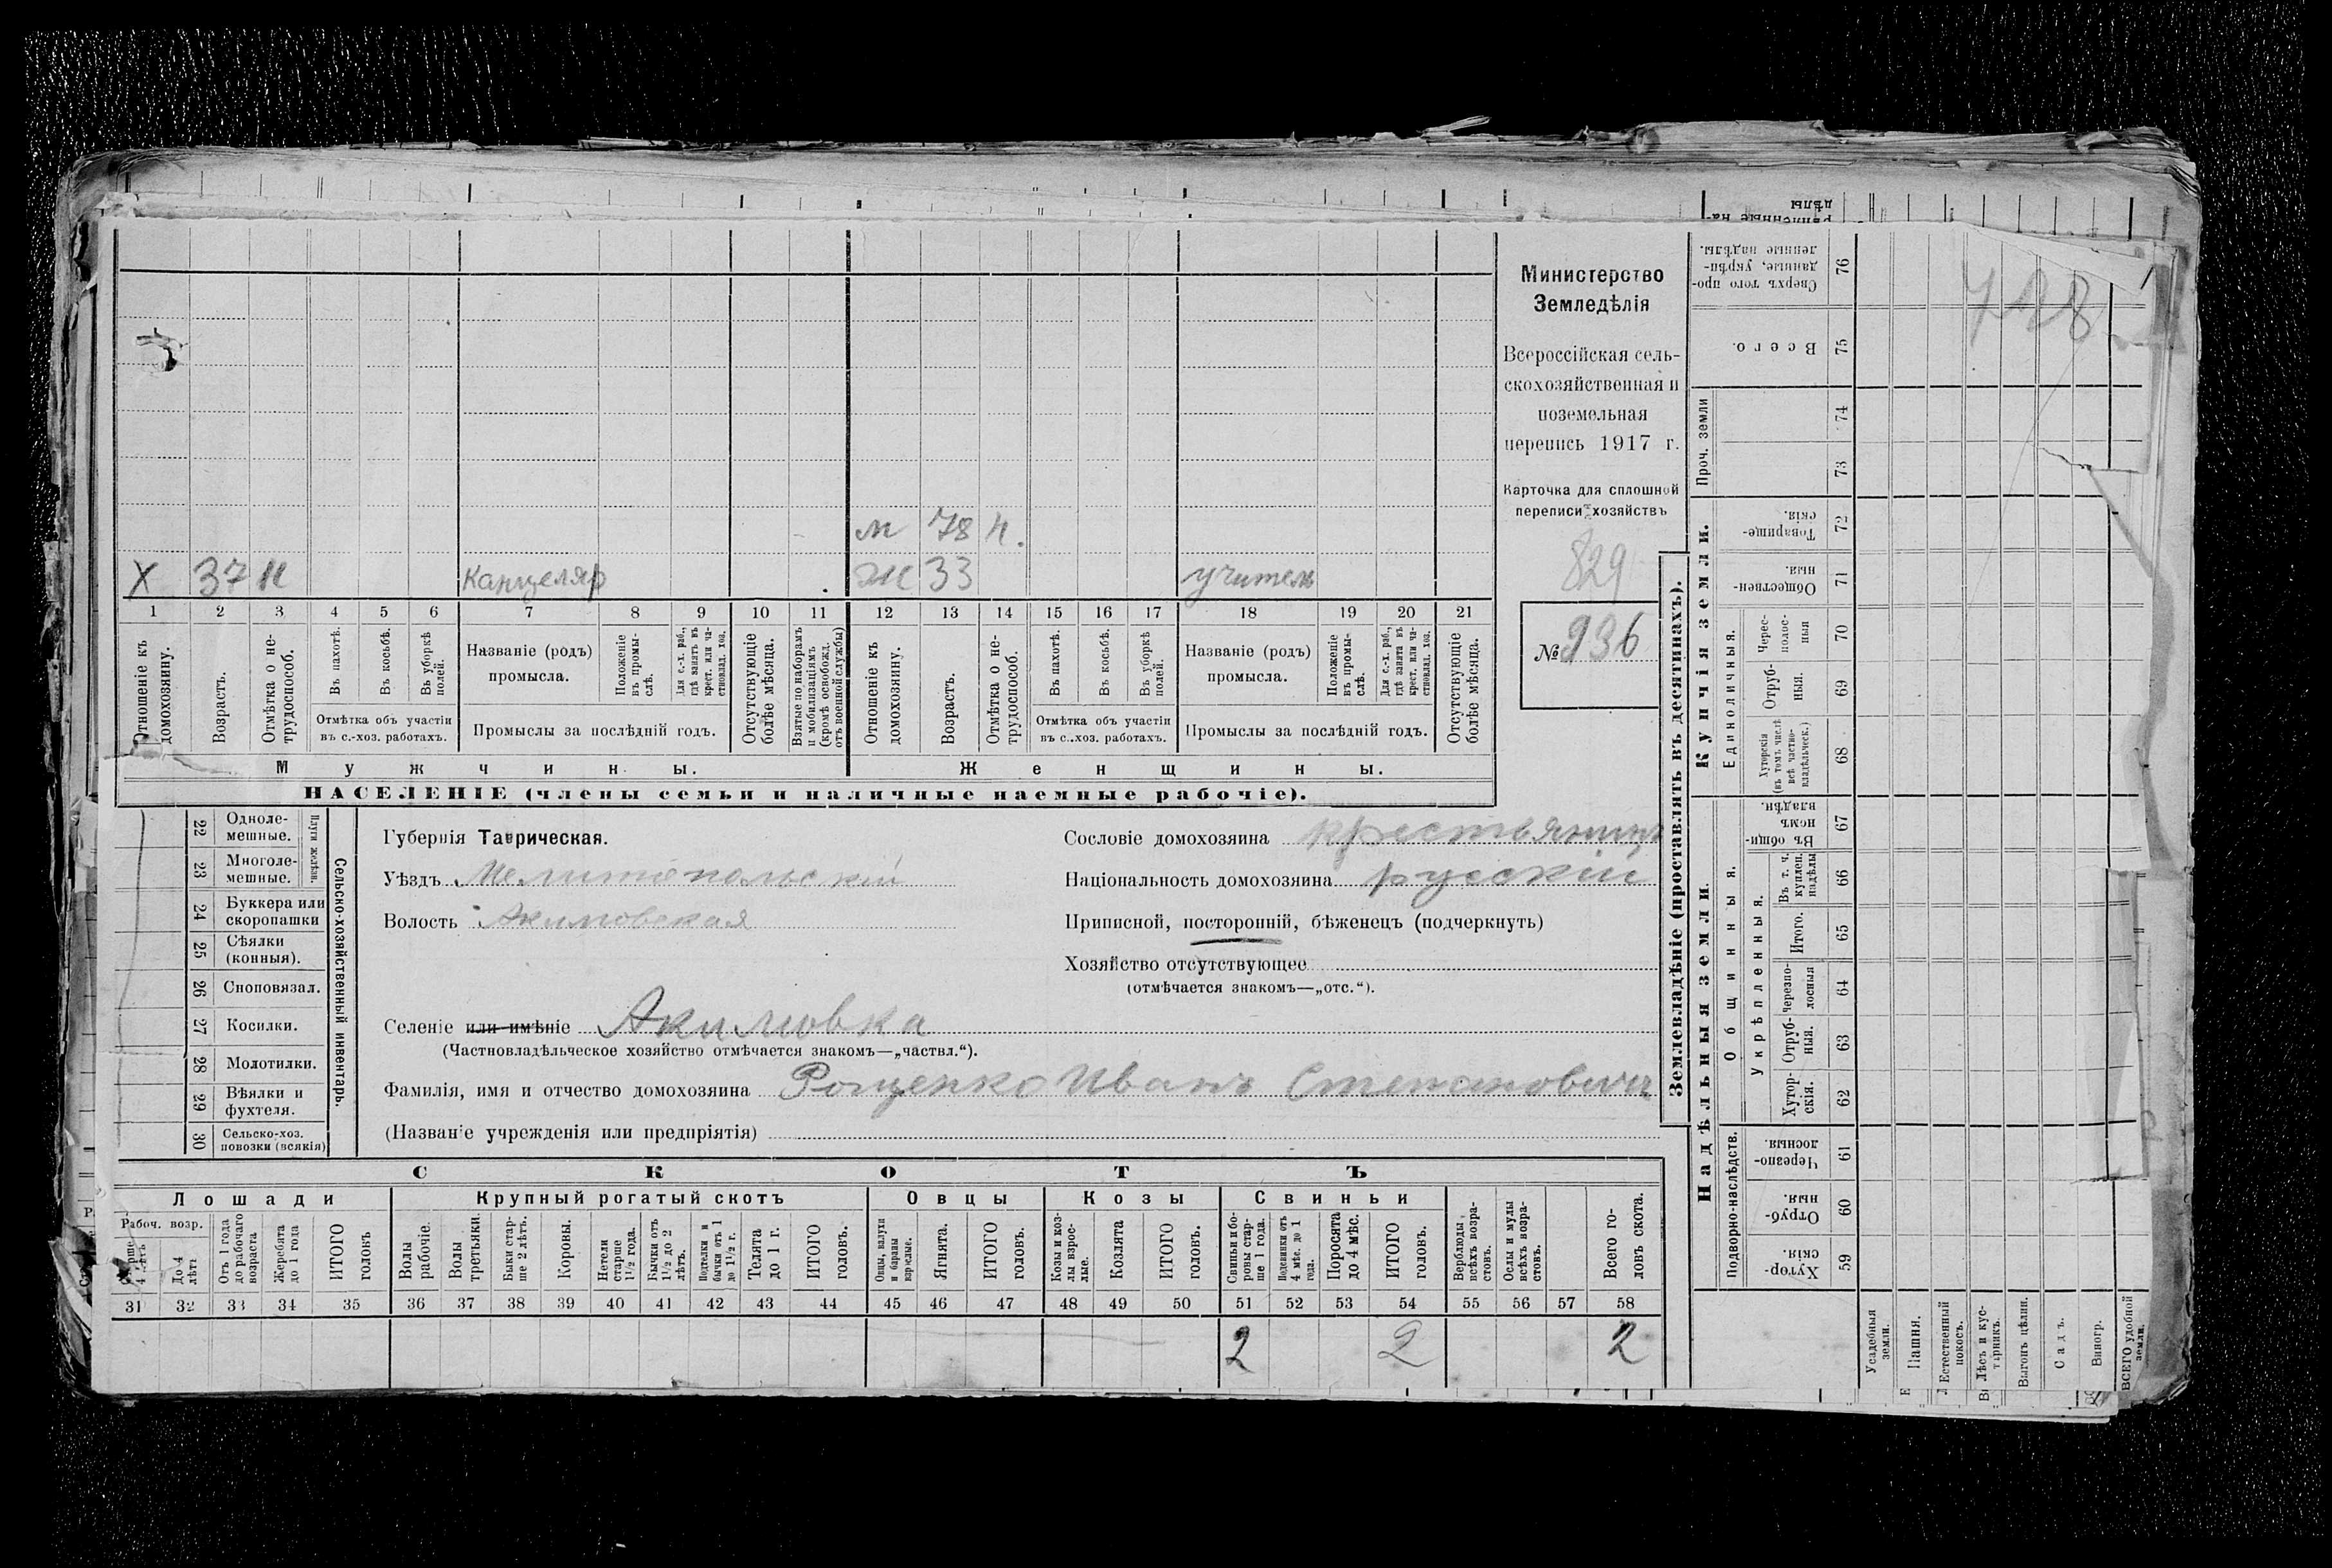 Министерство
Земледѣлія
Всероссійская сель-
скохозяйственная и
поземельная
перепись 1917 г.
Карточка для сплошной
переписи хозяйствъ
829
№ 936
м 78 н.
Х 37 н канцеляр ж 33 учитель
1 2 3 4 5 6 7 8 9 10 11 12 13 14 15 16 17 18 19 20 21
Отношеніе къ домохозяину.
Возрастъ.
Отмѣтка о не-трудоспособ.
Въ пахотѣ.
Въ косьбѣ.
Въ уборкѣ полей.
Отмѣтка объ участіи
въ с.-хоз. работахъ.
Названіе (родъ)
промысла.
Положеніе въ промы-слѣ.
Для с.-х. раб., гдѣ занятъ въ крест. или ча-стновлад. хоз.
Промыслы за послѣдній годъ.
Отсутствующіе болѣе мѣсяца.
Взятые по наборамъ и мобилизаціямъ (кромѣ освобожд. отъ военной службы)
Отношеніе къ домохозяину.
Возрастъ.
Отмѣтка о не-трудоспособ.
Въ пахотѣ.
Въ косьбѣ.
Въ уборкѣ полей.
Отмѣтка объ участіи
въ с.-хоз. работахъ.
Названіе (родъ)
промысла.
Положеніе въ промы-слѣ.
Для с.-х. раб., гдѣ занята въ крест. или ча-стновлад. хоз.
Промыслы за послѣдній годъ.
Отсутствующіе болѣе мѣсяца.
Мужчины. Женщины.
НАСЕЛЕНІЕ (члены семьи и наличные наемные рабочіе).
22 Одноле-мешные.
23 Многоле-мешные.
Плуги желѣзн.
24 Буккера или скоропашки
25 Сѣялки (конныя).
26 Сноповязал.
27 Косилки.
28 Молотилки.
29 Вѣялки и фухтеля.
30 Сельско-хоз. повозки (всякія)
Сельско-хозяйственный инвентарь.
Губернія Таврическая.
Уѣздъ Мелитопольскій
Волость Акимовская
Сословіе домохозяина крестьянинъ
Національность домохозяина русскій
Приписной, посторонній, бѣженецъ (подчеркнуть)
Хозяйство отсутствующее
(отмѣчается знакомъ—„отс.“).
Селеніе или имѣніе Акимовка
(Частновладѣльческое хозяйство отмѣчается знакомъ—„частвл.“).
Фамилія, имя и отчество домохозяина Рощенко Иванъ Степановичъ
(Названіе учрежденія или предпріятія)
СКОТЪ
Лошади Крупный рогатый скотъ Овцы Козы Свиньи
Рабоч. возр.
Старше 4 лѣтъ
До 4 лѣтъ
Отъ 1 года до рабочаго возраста
Жеребята до 1 года
ИТОГО головъ
Волы рабочіе.
Волы третьяки.
Быки стар-ше 2 лѣтъ.
Коровы.
Нетели старше 1½ года.
Бычки отъ 1½ до 2 лѣтъ.
Подтелки и бычки отъ 1 до 1½ г.
Телята до 1 г.
ИТОГО головъ.
Овцы, валухи и бараны взрослые.
Ягнята.
ИТОГО головъ.
Козы и коз-лы взрос-лые.
Козлята
ИТОГО головъ.
Свиньи и бо-ровы стар-ше 1 года.
Подсвинки отъ 4 мѣс. до 1 года.
Поросята до 4 мѣс.
ИТОГО головъ.
Верблюды всѣхъ возра-стовъ.
Ослы и мулы всѣхъ возра-стовъ.
Всего го-ловъ скота.
31 32 33 34 35 36 37 38 39 40 41 42 43 44 45 46 47 48 49 50 51 52 53 54 55 56 57 58
2 2 2
Землевладѣніе (проставлять въ десятинахъ).
Купчія земли.
Надѣльныя земли.
Сверхъ того про-данные, укрѣп-ленные надѣлы. 76
Всего. 75
Проч. земли 74
73
Товарище-скія. 72
Обществен-ныя. 71
Единоличныя.
Черес-полос-ныя 70
Отруб-ныя. 69
Хуторскія (въ томъ числѣ всѣ частно-владѣльческ.) 68
Общинныя.
Въ общи-номъ владѣн. 67
Укрѣпленныя.
Въ т. ч. куплен. надѣлы 66
Итого. 65
Черезпо-лосныя 64
Отруб-ныя. 63
Хутор-скія. 62
Подворно-наслѣдств.
Черезпо-лосныя 61
Отруб-ныя. 60
Хутор-скія. 59
Усадебныя земли.
Пашня.
Естественный покосъ.
Лѣсъ и кус-тарникъ.
Выгонъ цѣлин.
Садъ.
Виногр.
ВСЕГО удобной земли.